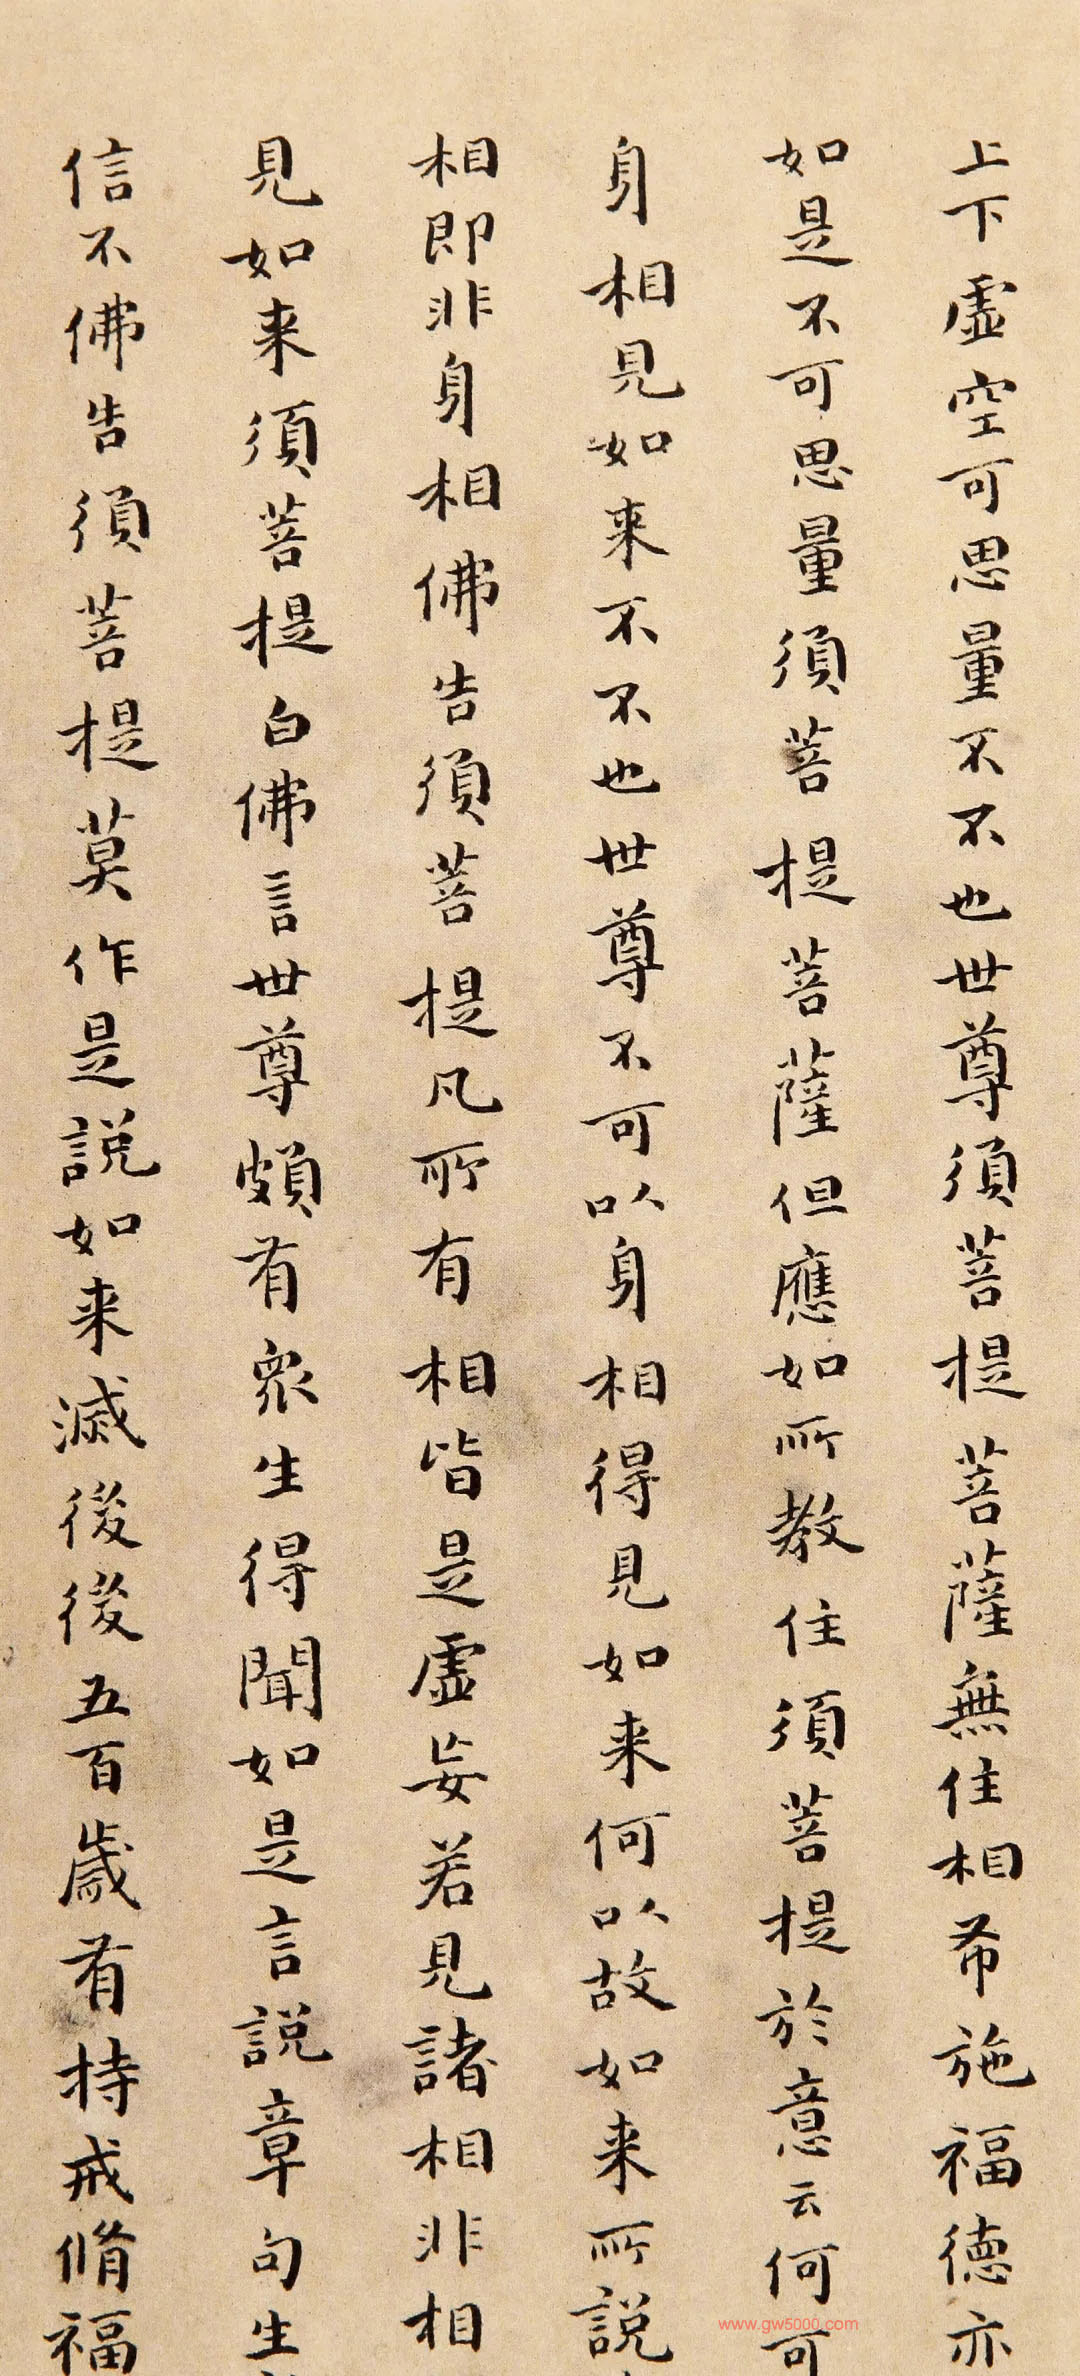 上下虛空可思量不不也世尊須菩提菩薩無住相布施福德亦
如是不可思量須菩提菩薩但應如所教住須菩提於意云何可
身相見如来不不也世尊不可以身相得見如来何以故如来所説
相即非身相佛告須菩提凡所有相皆是虛妄若見諸相非相
見如来須菩提白佛言世尊頗有衆生得聞如是言説章句生
信不佛告須菩提莫作是説如来滅後後五百歲有持戒脩福
www.gw5000.com